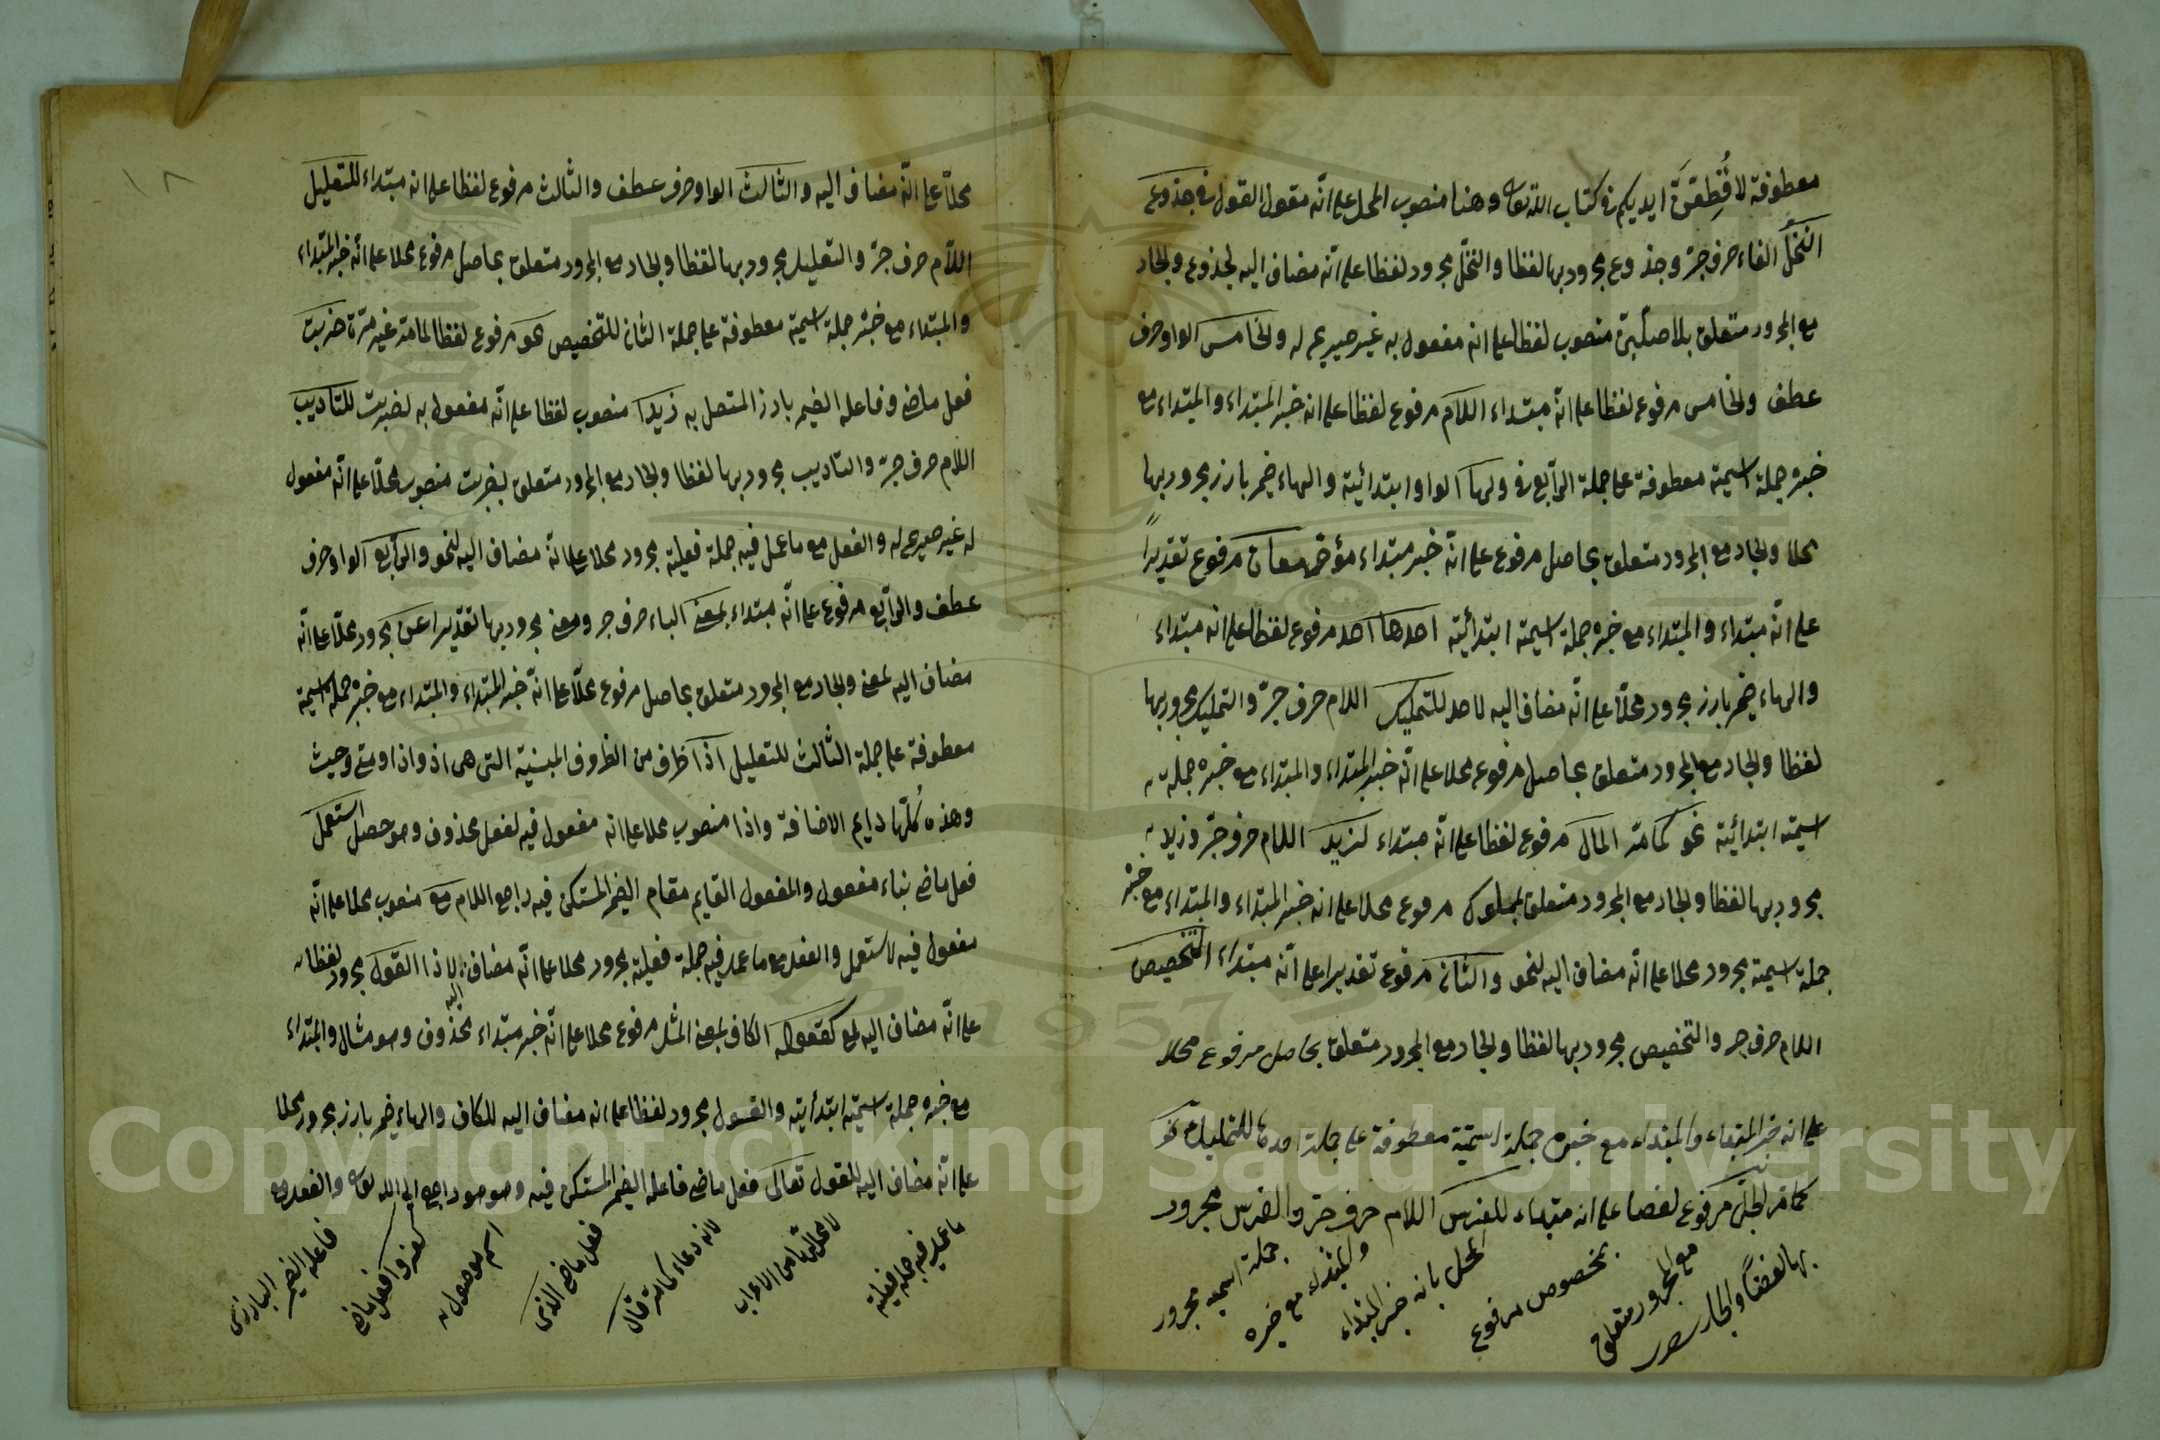 معطوفة لا قُطِعَنَّ ايديكم في كتاب الله تعالى وهنا منصوب المحل على انّه مقول القول في جذوع
النخل الفاء حرف جرّ وجذوع مجرور بها لفظا والنخل مجرور لفظا على انّه مضاف اليه لجذوع والجار
مع المجرور متعلق بلاصلّبنّ منصوب لفظا على انه مفعول به غير صريح له والخامس الواو حرف
عطف والخامس مرفوع لفظا على انّه مبتداء اللام مرفوع لفظا على انه خبر المبتداء والمبتداء مع
خبره جملة اسمية معطوفة على جملة الرابع في ولها الواو ابتدائية والهاء ضمير بارز مجرور بها
محلا والجار مع المجرور متعلق بحاصل مرفوع على انّه خبر مبتداء مؤخر معان مرفوع تقديراً
على انّه مبتداء والمبتداء مع خبره جملة اسمية ابتدائية احدها احد مرفوع لفظا على انه مبتداء
والهاء ضمير بارز مجرور محلّا على انّه مضاف اليه لاحد للتمليك اللام حرف جرّ والتمليك مجرور بها
لفظا والجار مع المجرور متعلق بحاصل مرفوع محلا على انّه خبر المبتداء والمبتداء مع خبره جملة
اسمية ابتدائية نحو كمامرّ المال مرفوع لفظا على انّه مبتداء لزيد اللام حرف جرّ وزيد
مجرور بها لفظا والجار مع المجرور متعلق بمملوك مرفوع محلا على انه خبر المبتداء والمبتداء مع خبره
جملة اسمية مجرور محلا على انّه مضاف اليه لنحو والثاني مرفوع تقديرا على انّه مبتداء للتخصيص
اللام حرف جر والتخصيص مجرور بها لفظا والجار مع المجرور متعلق بحاصل مرفوع محلا
على انه خبر المبتداء والمبتداء مع خبره جملة اسمية معطوفة على جملة احدها للتمليك نحو
كمامرّ الجل مرفوع لفظا على انه مبتداء للفرس اللام حرف جرّ والفرس مجرور
بها لفظاً والجار
مع المجرور متعلق
بخصوص مرفوع
المحل بانه خبر المبتداء
والمبتداء مع خبره
جملة اسمية مجرور
محلّا على انّه مضاف اليه والثالث الواو حرف عطف والثالث مرفوع لفظا على انه مبتداء للتعليل
اللام حرف جرّ والتعليل مجرور بها لفظا والجار مع المجرور متعلق بحاصل مرفوع محلا على انّه خبر المبتداء
والمبتداء مع خبره جملة اسمية معطوفة على جملة الثاني للتخصيص نحو مرفوع لفظا لمامرّ غير مرّة ضربت
فعل ماض وفاعله الضمير بارز المتصل به زيدا منصوب لفظا على انّه مفعول به لضربت للتاديب
اللام حرف جرّ والتاديب مجرور بها لفظا والجار مع المجرور متعلق بضربت منصوب محلّا على انّه مفعول
له غير صريح له والفعل مع ما عمل فيه جملة فعلية مجرور محلا على انّه مضاف اليه لنحو والرابع الواو حرف
عطف والرابع مرفوع على انّه مبتداء بمعنى الباء حرف جر ومعنى مجرور بها تقديرا عن مجرور محلّا على انّه
مضاف اليه لمعنى والجار مع المجرور متعلق بحاصل مرفوع محلّا على انّه خبر المبتداء والمبتداء مع خبره جملة اسمية
معطوفة على جملة الثالث للتعليل اذا ظرف من الظروف المبنية التى هى اذ واذا ومتى وحيث
وهذه كُلّها دايم الاضافة واذا منصوب محلا على انه مفعول فيه لفعل محذوف وهو حصل استعمل
فعل ماض بناء مفعول والمفعول القايم مقام الضمير المستكن فيه راجع اللام مع منصوب محلا على انّه
مفعول فيه لاستعمل والفعل مع ما عمل فيه جملة فعلية مجرور محلا على انّه مضاف اليه لاذا القول مجرور لفظا
على انّه مضاف اليه لمع كقوله الكاف بمعنى المثل مرفوع محلا على انّه خبر مبتداء محذوف وهو مثال والمبتداء
مع خبره جملة اسمية ابتدأيته والقول مجرور لفظا على انه مضاف اليه للكاف والهاء ضمير بارز مجرور محلا
على انّه مضاف اليه للقول تعالى فعل ماض فاعله الضمير المستكن فيه وهو هو راجع الى الله تعالى والفعل مع
ما عمل فيه جملة فعلية
لا محل لها من الاعراب
لانه دعاء كمامرّ قال
فعل ماض الذى
اسم موصول
كفروا فعل ماض
فاعله الضمير البارز
Copyright © King Saud University
1957
١٨